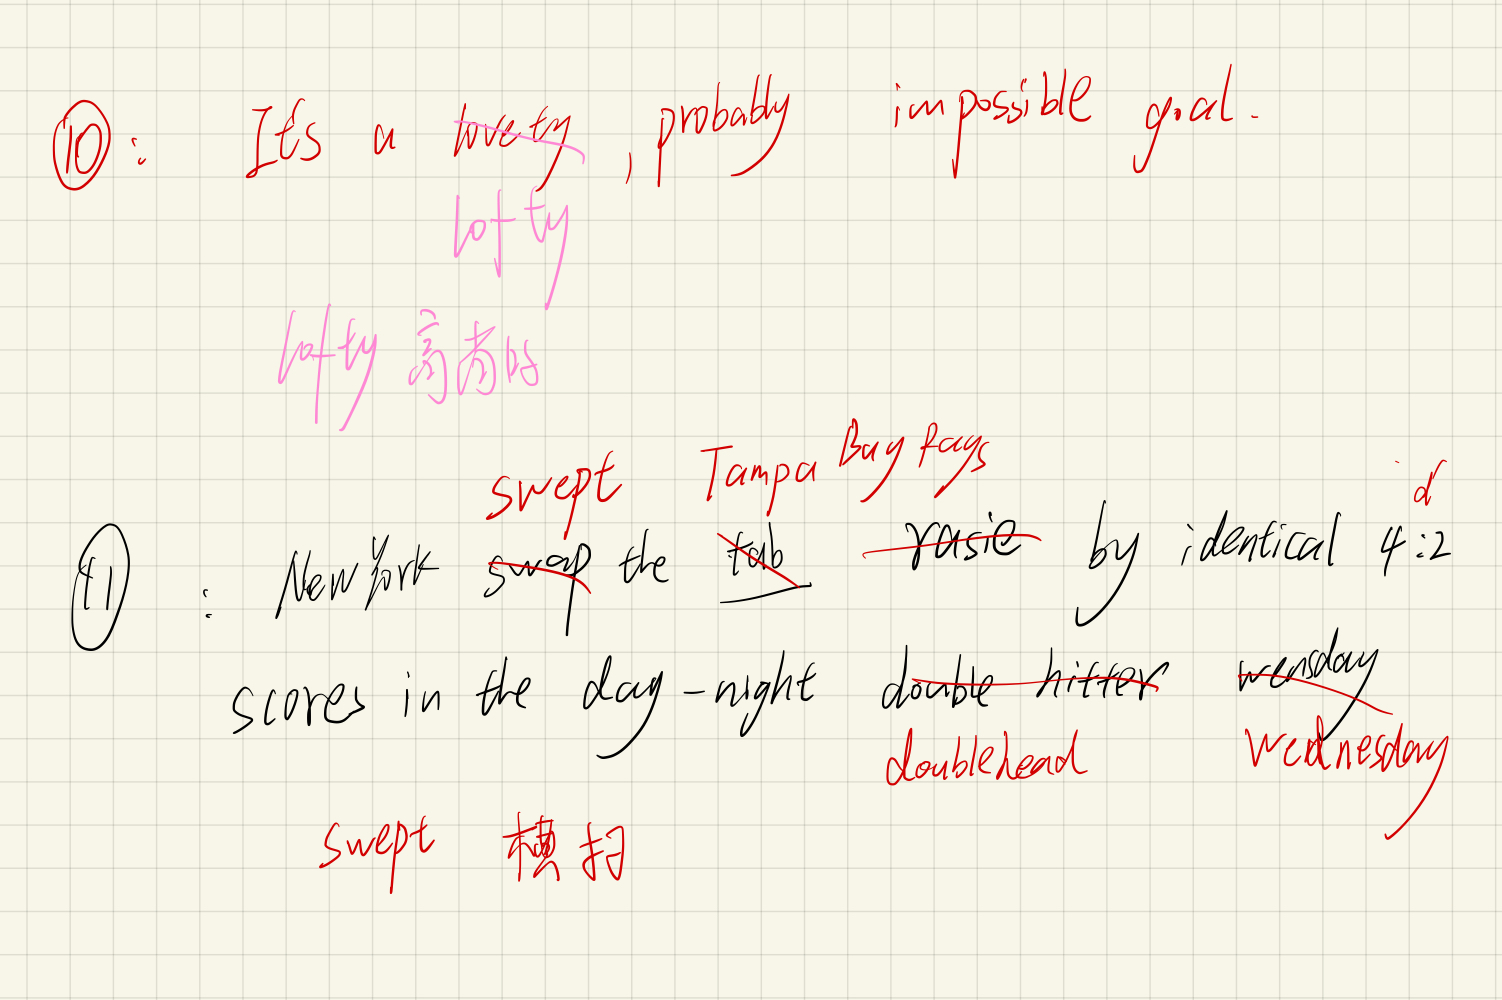 ⑩: It's a lovety, probably impossible goal.
lofty
lofty 高尚的
swept Tampa Bay Rays d
⑪: New York swap the tab rasie by identical 4:2
scores in the day-night double hitter wensday
doublehead wednesday
swept 横扫